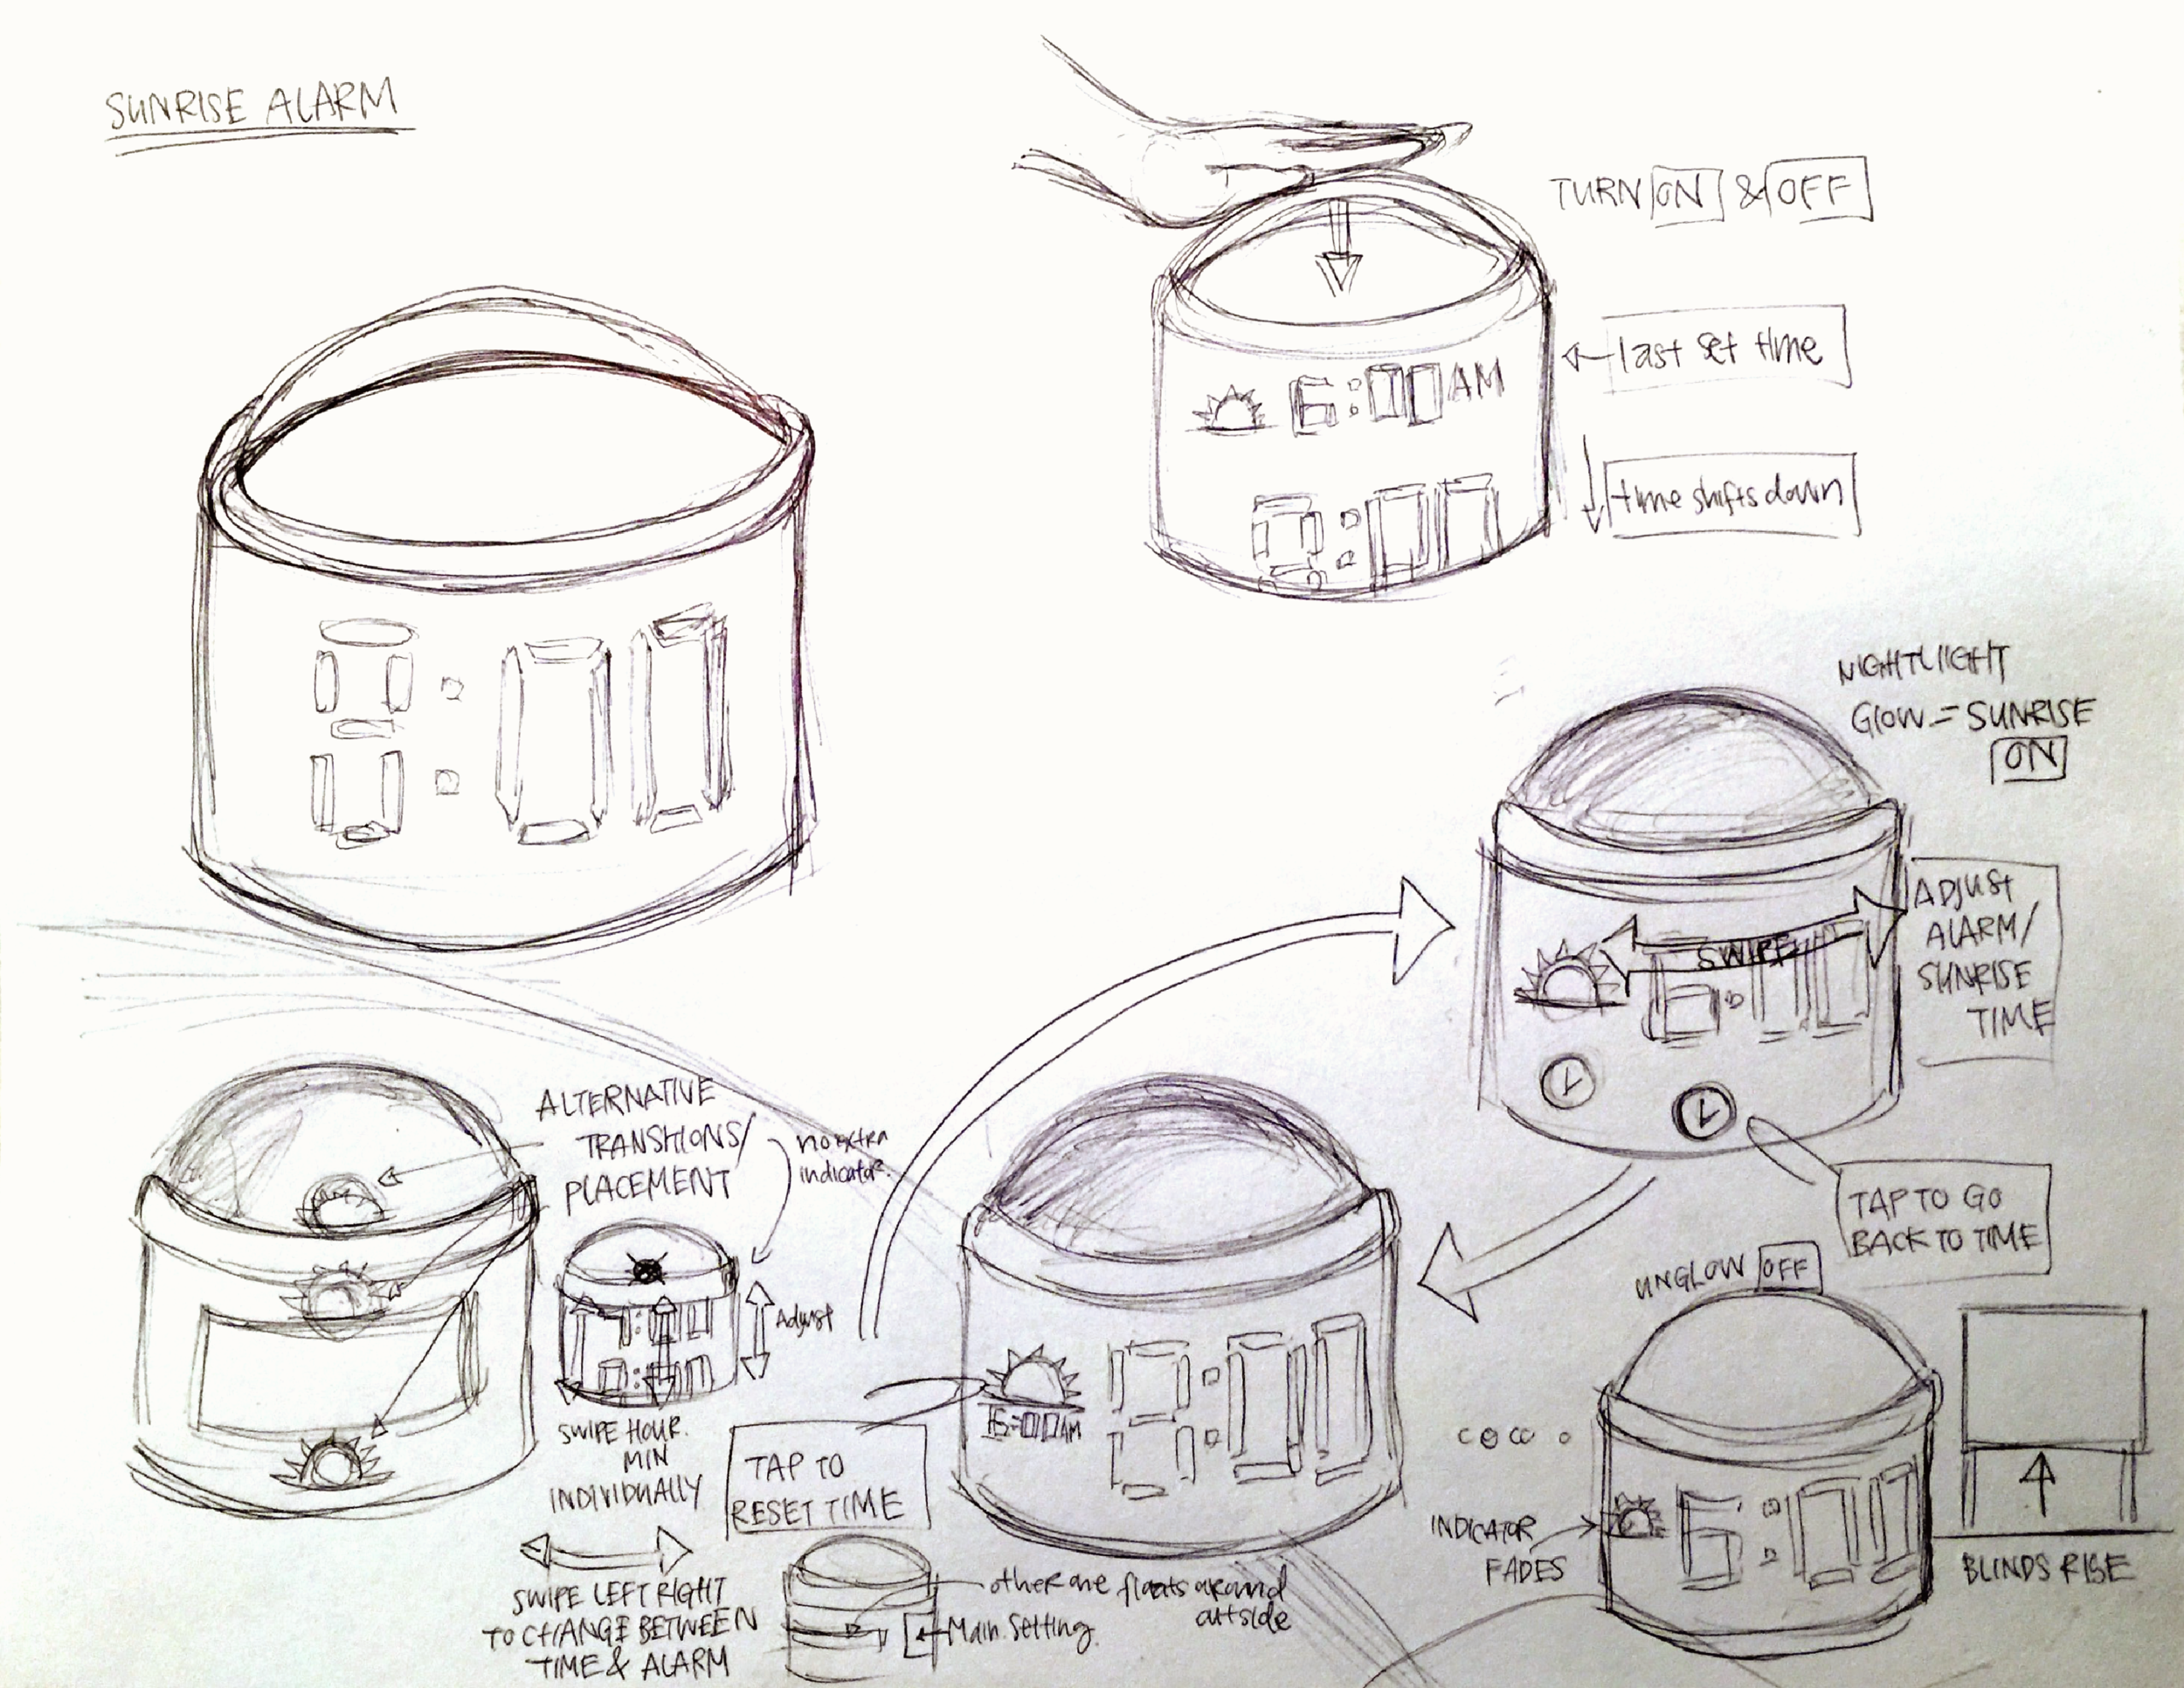 SUNRISE ALARM
TURN ON & OFF
last set time
6:00 AM
time shifts down
8:00
8:00
NIGHTLIGHT
GLOW = SUNRISE
ON
ADJUST
ALARM/
SUNRISE
TIME
SWIPE
6:00
TAP TO GO
BACK TO TIME
ALTERNATIVE
TRANSITIONS/
PLACEMENT
no extra
indicator.
Adjust
SWIPE HOUR.
MIN
INDIVIDUALLY
TAP TO
RESET TIME
6:00AM
8:00
UNGLOW OFF
INDICATOR
FADES
6:00
BLINDS RISE
SWIPE LEFT RIGHT
TO CHANGE BETWEEN
TIME & ALARM
other one floats around
outside
Main Setting.